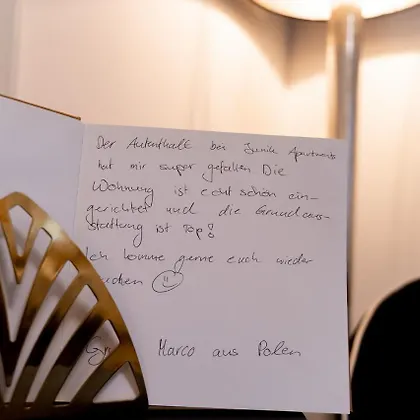 Der Aufenthalt bei Junik Apartments
hat mir super gefallen Die
Wohnung ist echt schön ein-
gerichtet und die Grundaus-
stattung ist Top!
Ich komme gerne euch wieder
Marco aus Polen